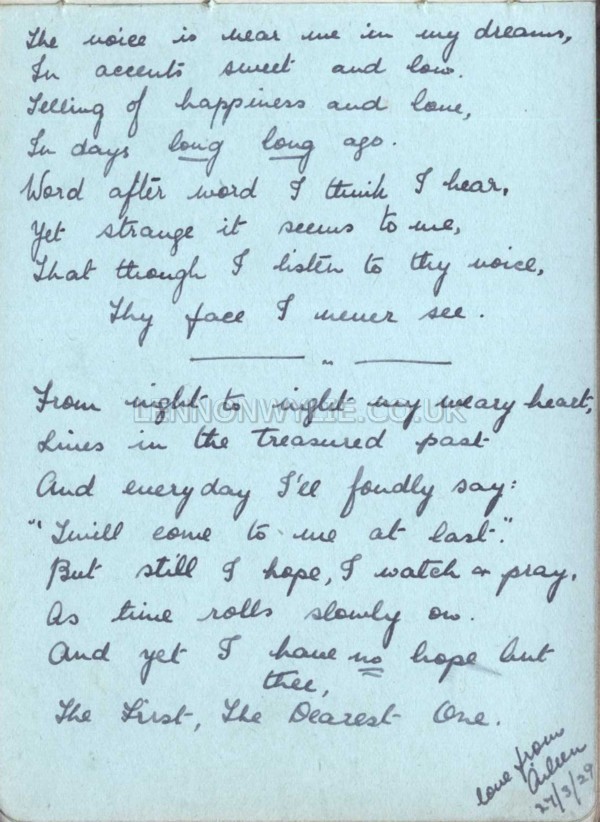 The voice is near me in my dreams,
In accents sweet and low.
Telling of happiness and love,
In days long long ago.
Word after word I think I hear,
Yet strange it seems to me,
That though I listen to thy voice,
Thy face I never see.
"
LENNONWYLIE.CO.UK
From night to night my weary heart,
Lives in the treasured past
And every day I'll fondly say:
"Twill come to me at last".
But still I hope, I watch & pray,
As time rolls slowly on.
And yet I have no hope but
thee,
The First, The Dearest One.
love from
27/3/29